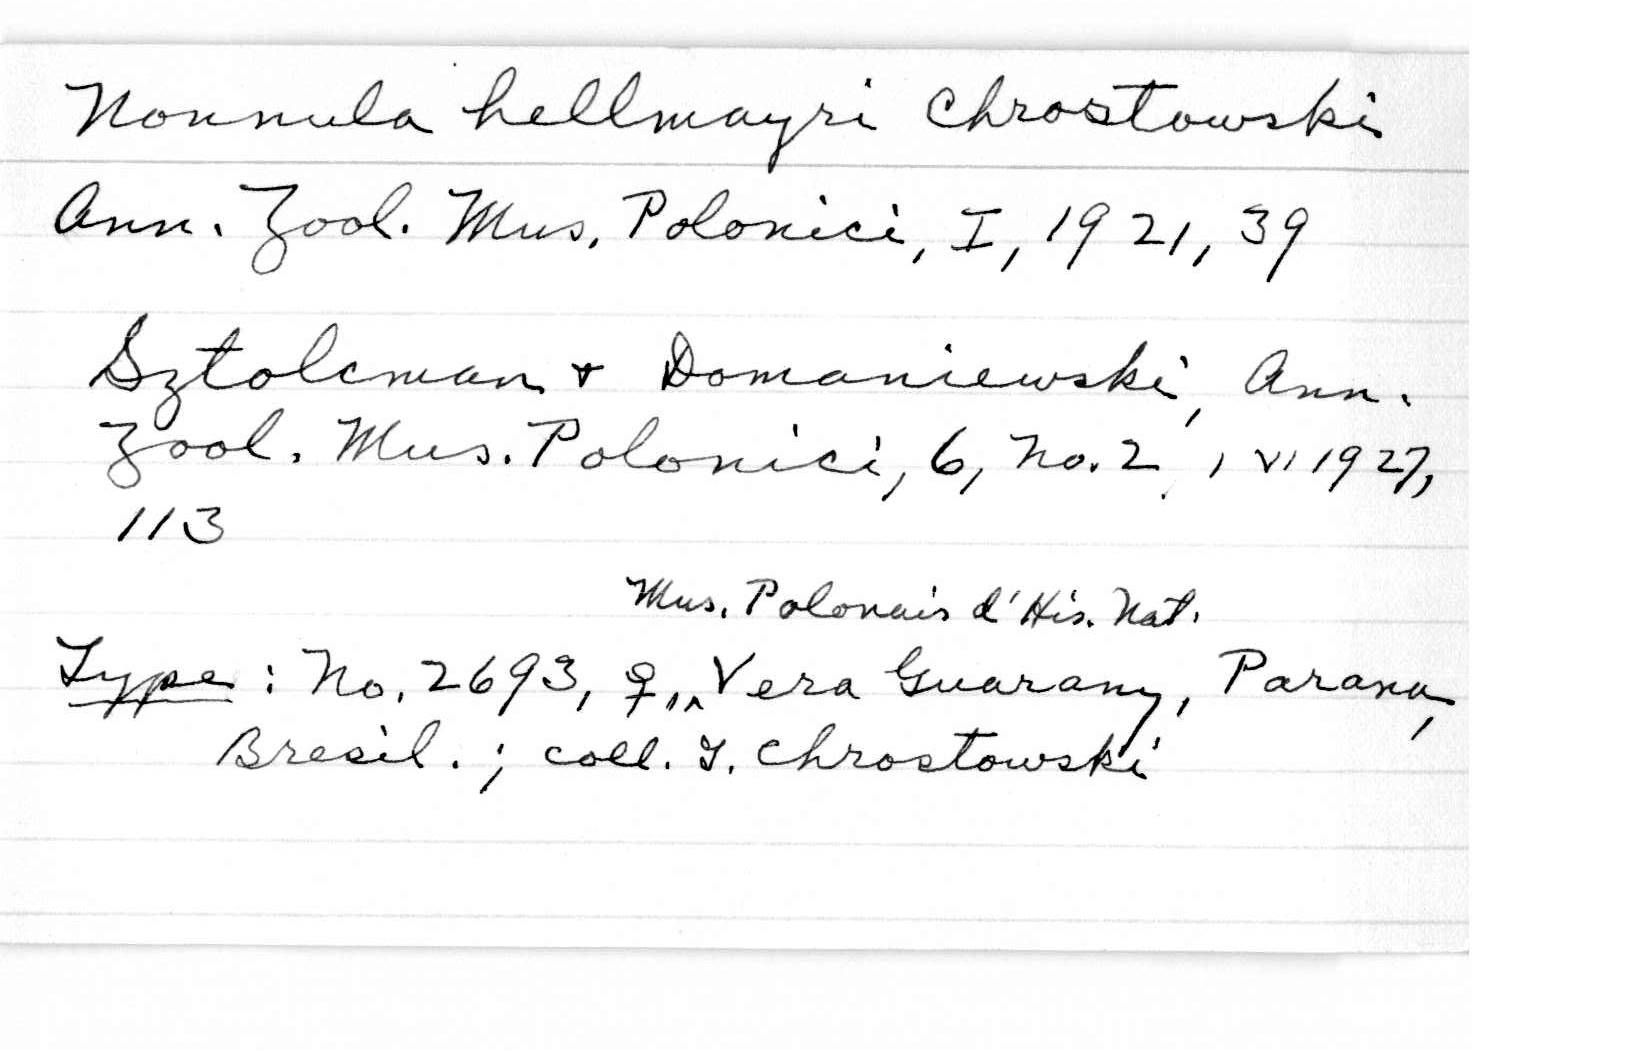 Nonnula hellmayri Chrostowski
Ann. Zool. Mus. Polonici, I, 1921, 39
Sztolcman & Domaniewski, Ann.
Zool. Mus. Polonici, 6, No. 2, VI 1927,
113
Mus. Polonais d'His. Nat.
Type: No. 2693, ♀, Vera Guarany, Parana,
Bresil.; coll. T. Chrostowski